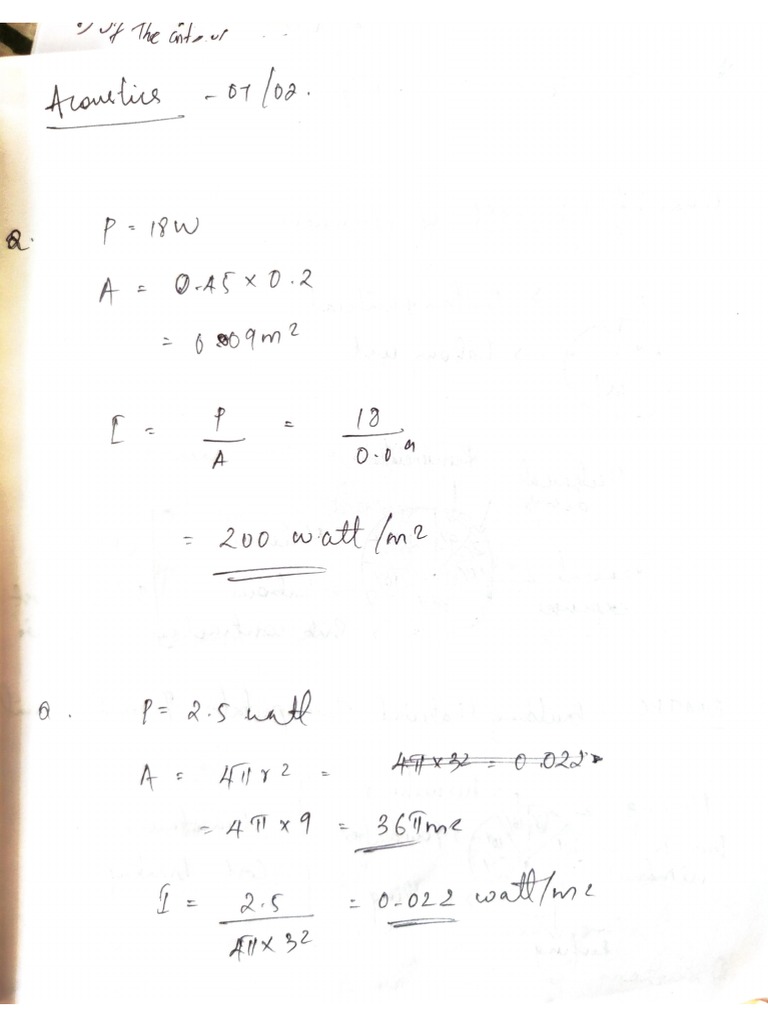 If The
Acoustics - 07/02.
Q. P = 18W
A = 0.45 × 0.2
= 0.09m2
I = P/A = 18/0.09
= 200 watt/m2
Q. P = 2.5 watt
A = 4πr2 = 4π×32 = 0.022
= 4π × 9 = 36πm2
I = 2.5/4π×32 = 0.022 watt/m2